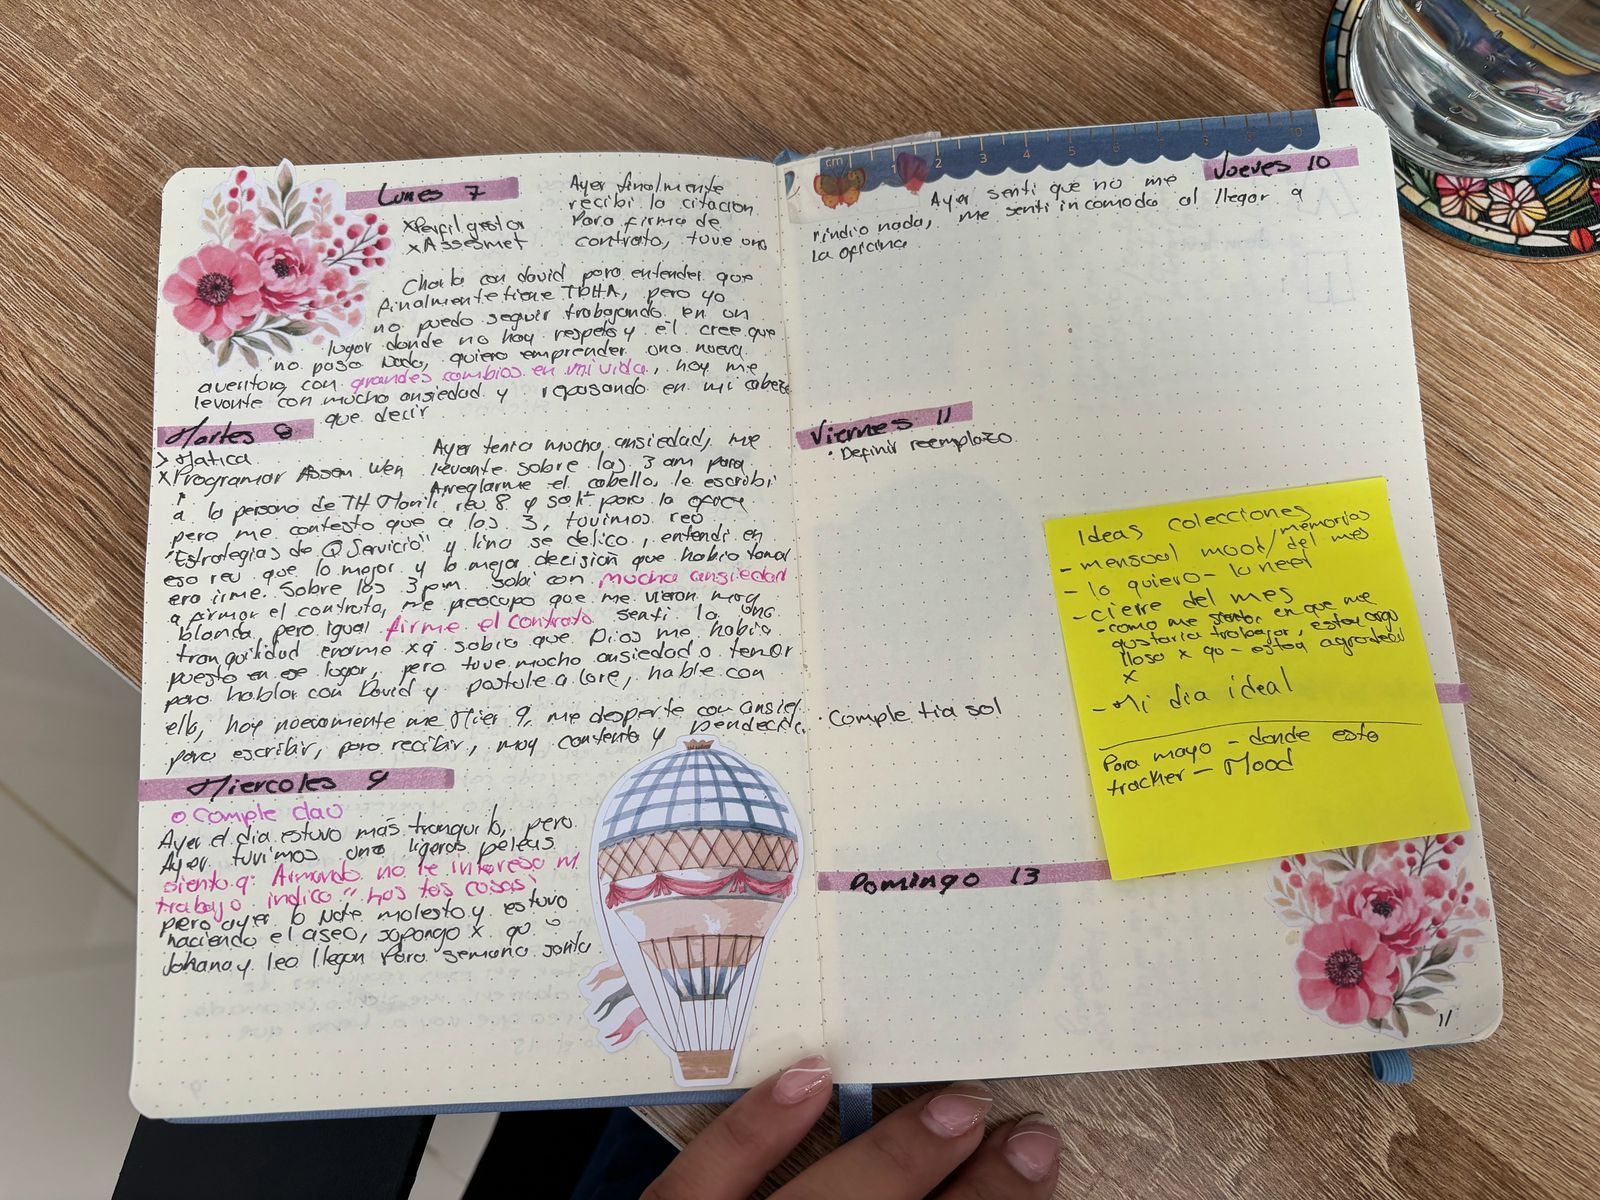 Lunes 7
xPerfil gestor
xAssesmet
Ayer finalmente
recibi la citacion
Para firma de
contrato, tuve una
Charla con david para entender que
finalmente tiene TDHA, pero yo
no puedo seguir trabajando en un
lugar donde no hay respeto y el cree que
no paso Nada, quiero emprender una nueva
aventura con grandes cambios en mi vida, hoy me
levante con mucho ansiedad y repasando en mi cabeza
que decir
Martes 8
> Matica
xProgramar Assem Wen
Ayer tenia mucha ansiedad, me
levante sobre las 3 am para
Arreglarme el cabello, le escribi
a la persona de TH
pero me contesto que a las 3, tuvimos reo
"Estrategias de Q Servicio" y lina se delico, entendi en
eso reu que lo mejor y la mejor decisión que habia tomar
era irme. Sobre las 3 pm subi con mucha ansiedad
a firmar el contrato, me preocupo que me vieron muy
blanca, pero igual firme el contrato senti la una
tranquilidad enorme xq sabia que Dios me habia
puesto en ese lugar, pero tuve mucho ansiedad o temor
para hablar con David y postule a lore, hable con
ella, hoy nuevamente me Mier 9, me desperte con ansied
para escribir, para recibir, muy contenta y bendecida
Miercoles 9
o comple clao
Ayer el dia estuvo más tranquilo, pero
Ayer tuvimos una ligeras peleas
siento q: Armando no le intereso mi
trabajo indico "has tus cosas)
pero ayer lo Note molesto y estuvo
haciendo el aseo, supongo x qu
Johana y leo llegan Para semana santa
cm 0 1 2 3 4 5 6 7 8 9 10
Jueves 10
Ayer senti que no me
rindio nada, me senti incomoda al llegar a
la oficina
Viernes 11
· Definir reemplazo
· Comple tia sol
Domingo 13
Ideas colecciones
- mensual mood/memorias
del mes
- lo quiero - lo need
- cierre del mes
- como me siento, en que me
gustaria trabajar, estoy orgu
llosa x qu - estoy agradecid
x
- Mi dia ideal
Para mayo - donde esta
tracker - Mood
11
9